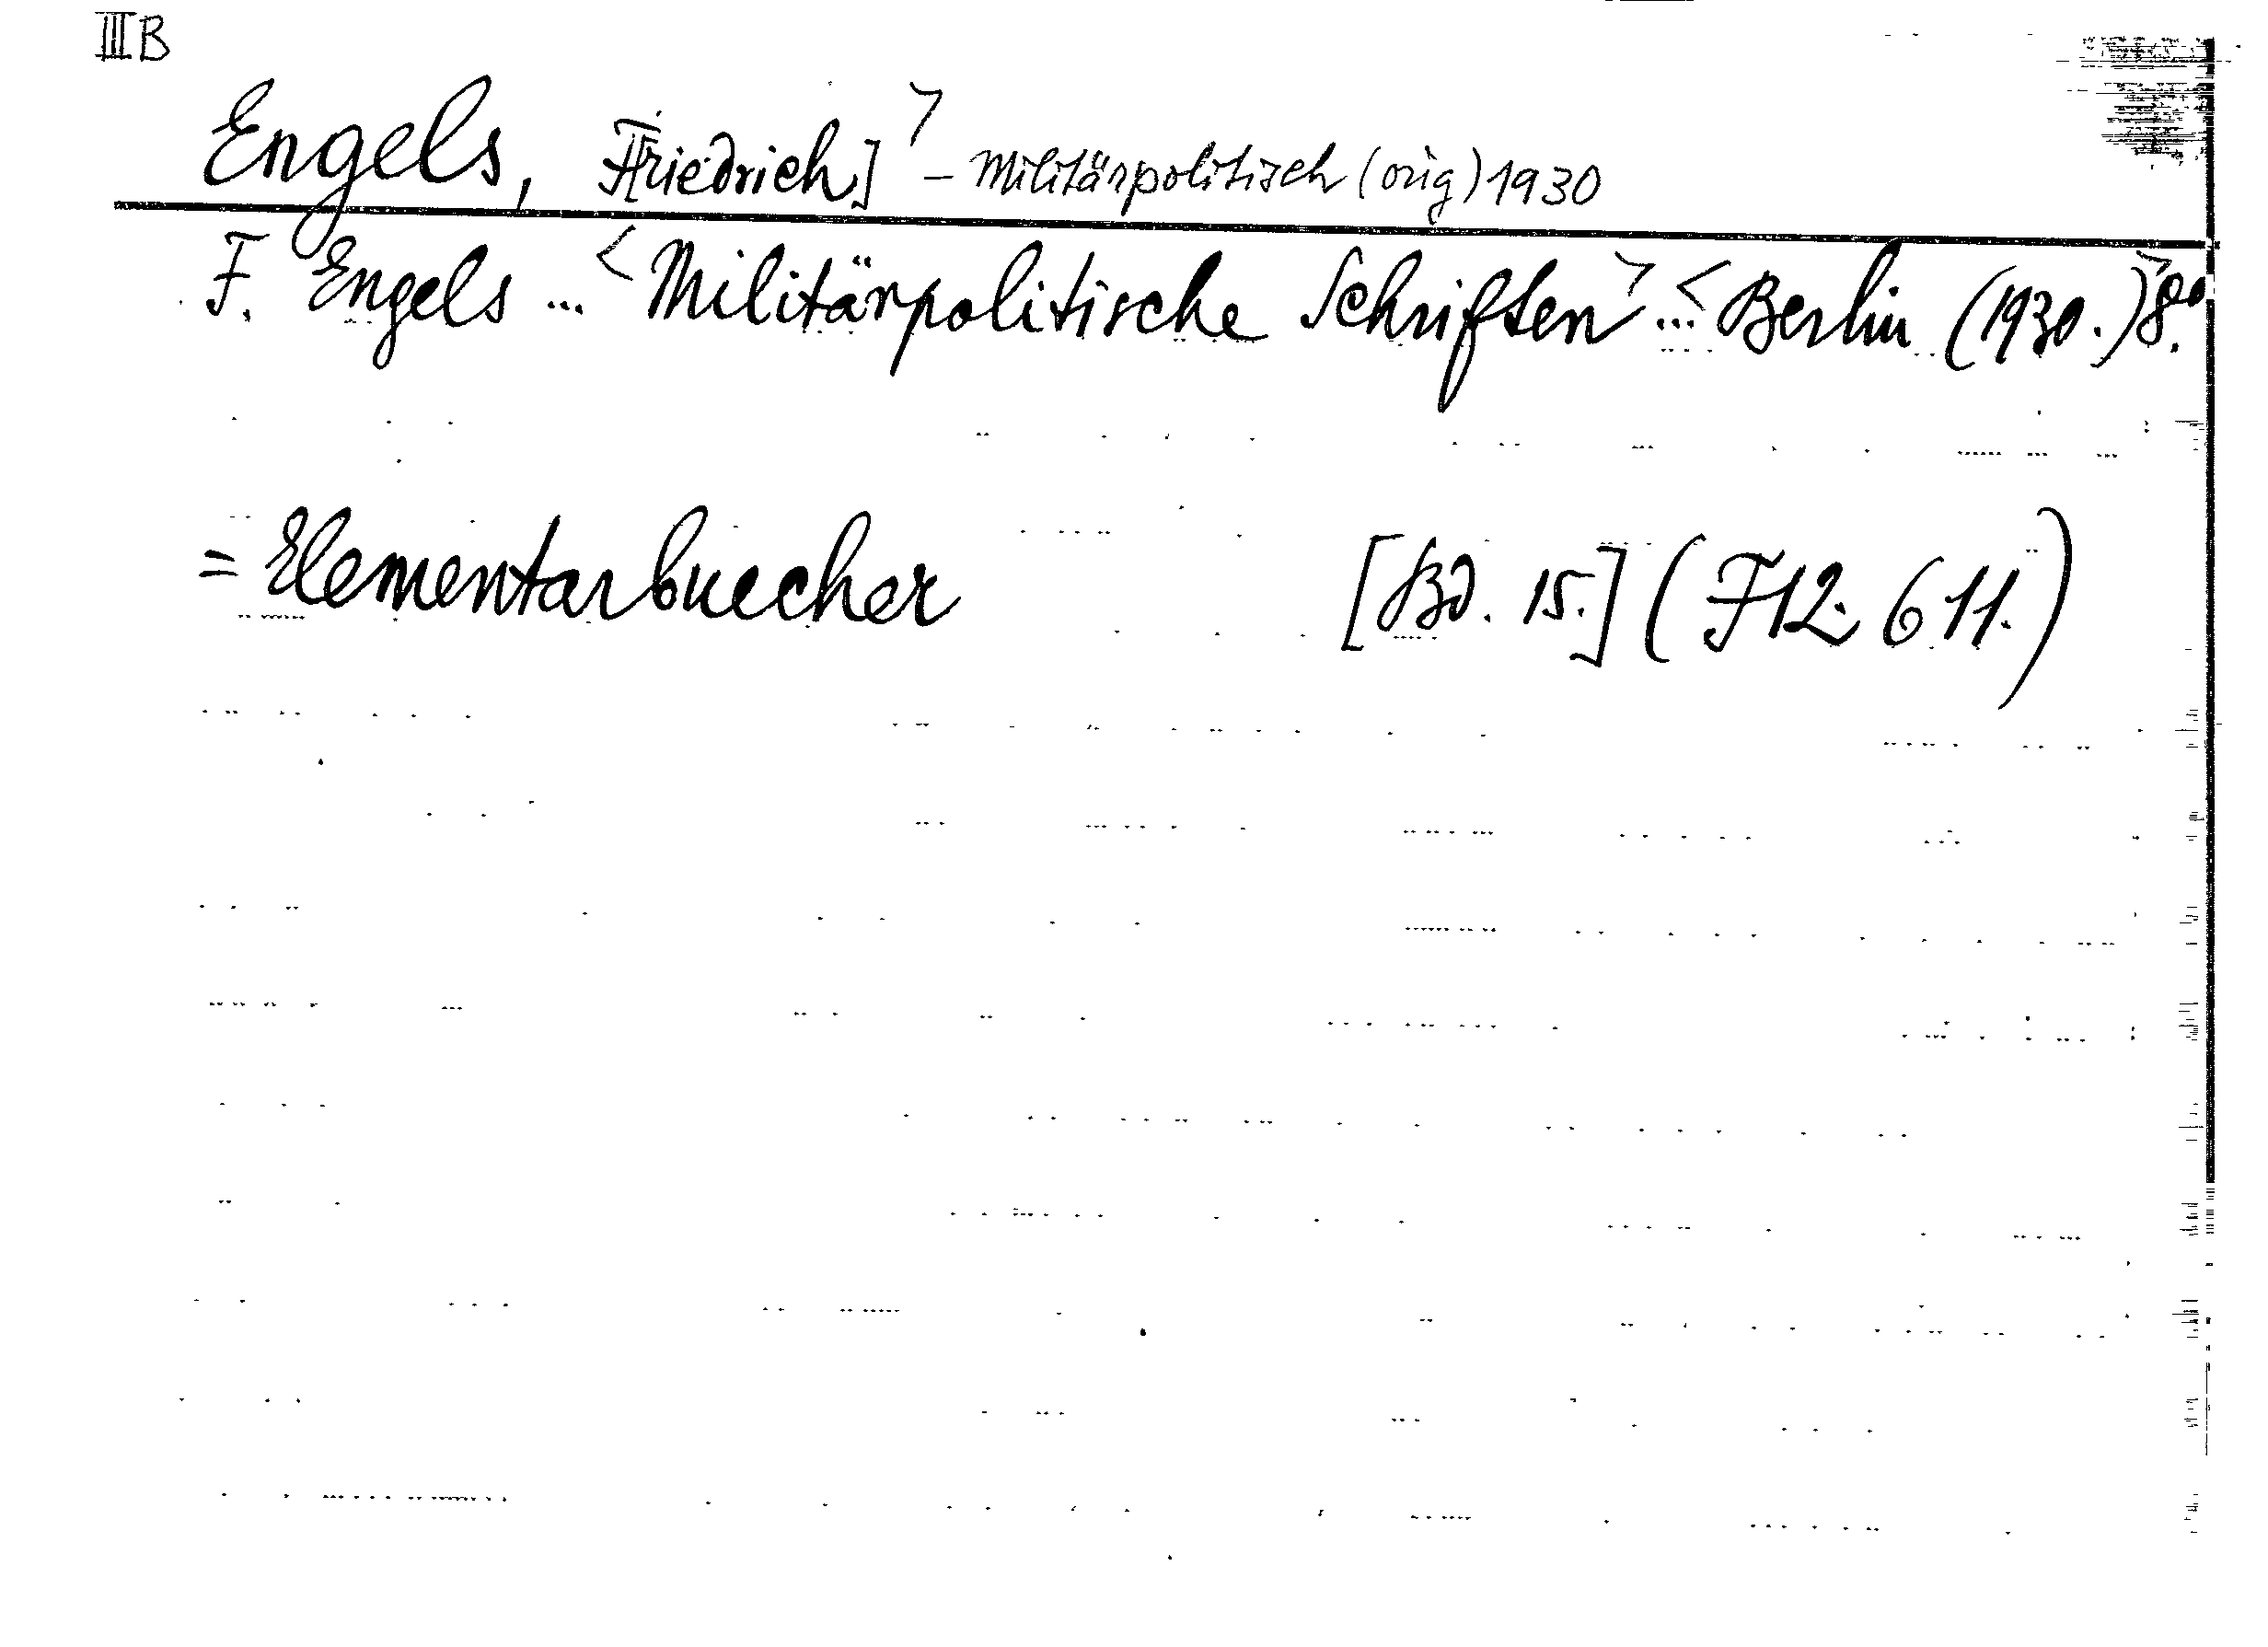 IIIB
Engels, F[riedrich] > – Militärpolitisch (orig) 1930
F. Engels ... < Militärpolitische Schriften > ... < Berlin (1930.) > 8°.
= Elementarbuecher [Bd. 15.] (F12. 611.)